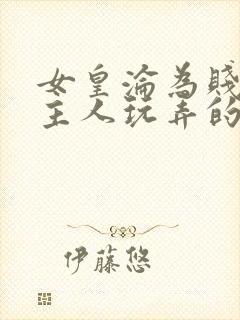 女皇淪為賤
主人玩弄的
伊藤悠